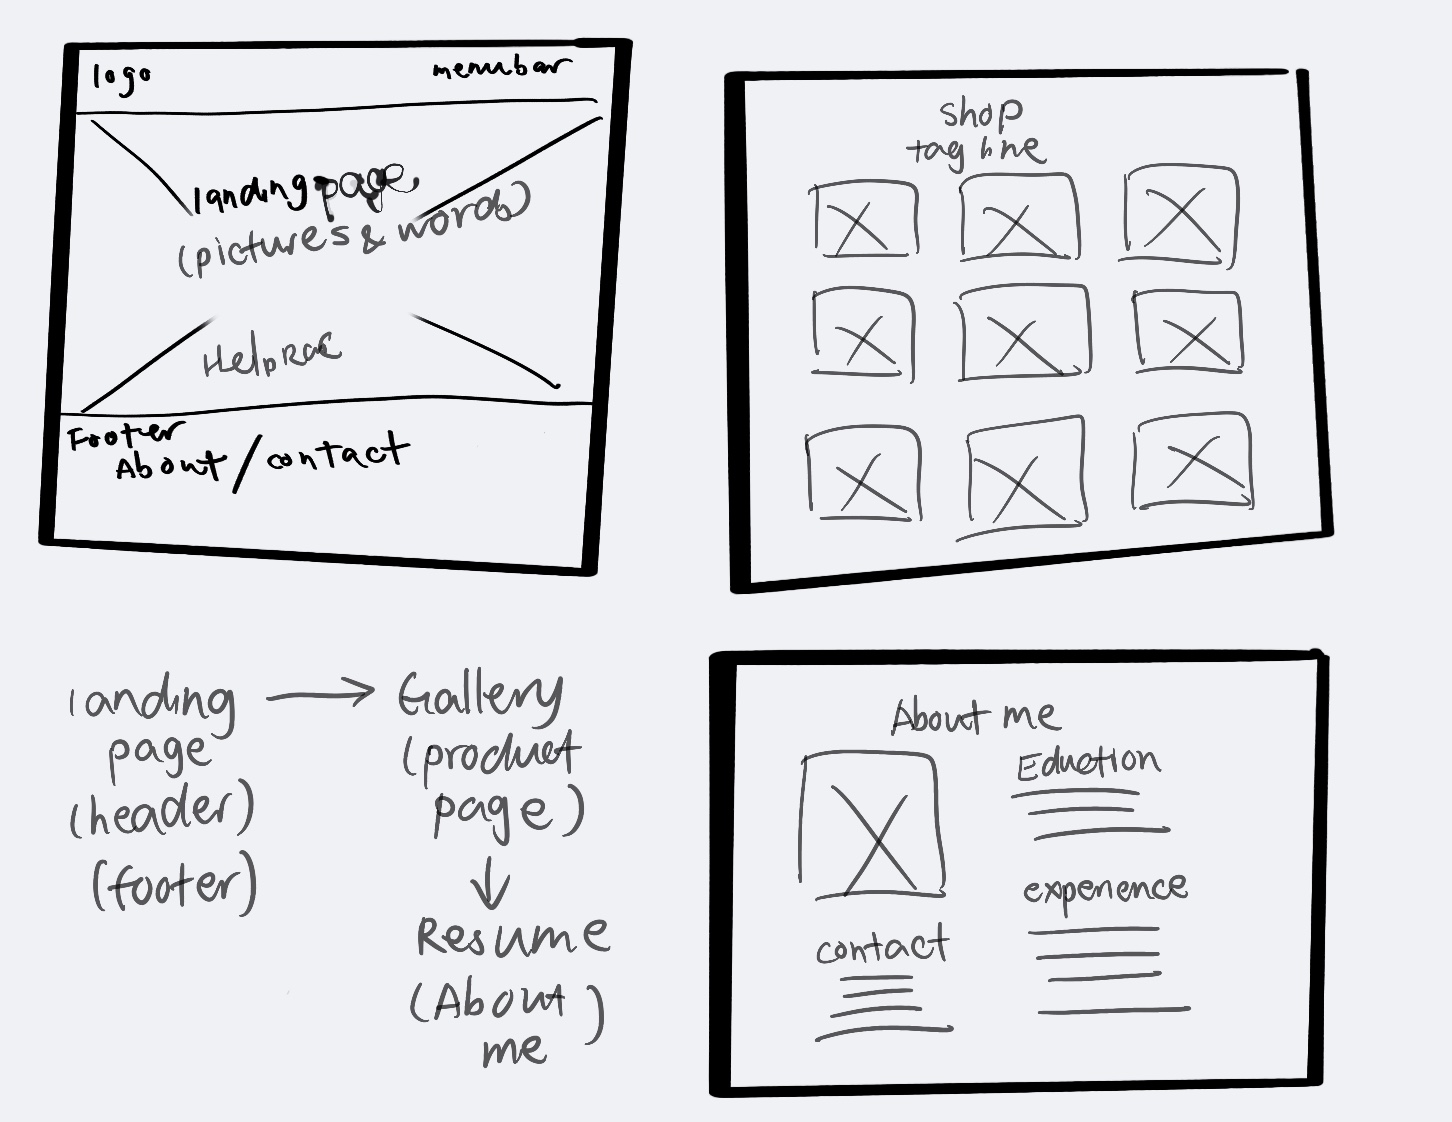 logo
menubar
landing page
(pictures & words)
Footer
About / contact
shop
tag line
landing
page
(header)
(footer)
Gallery
(product
page)
Resume
(About
me)
About me
Eduction
experience
contact